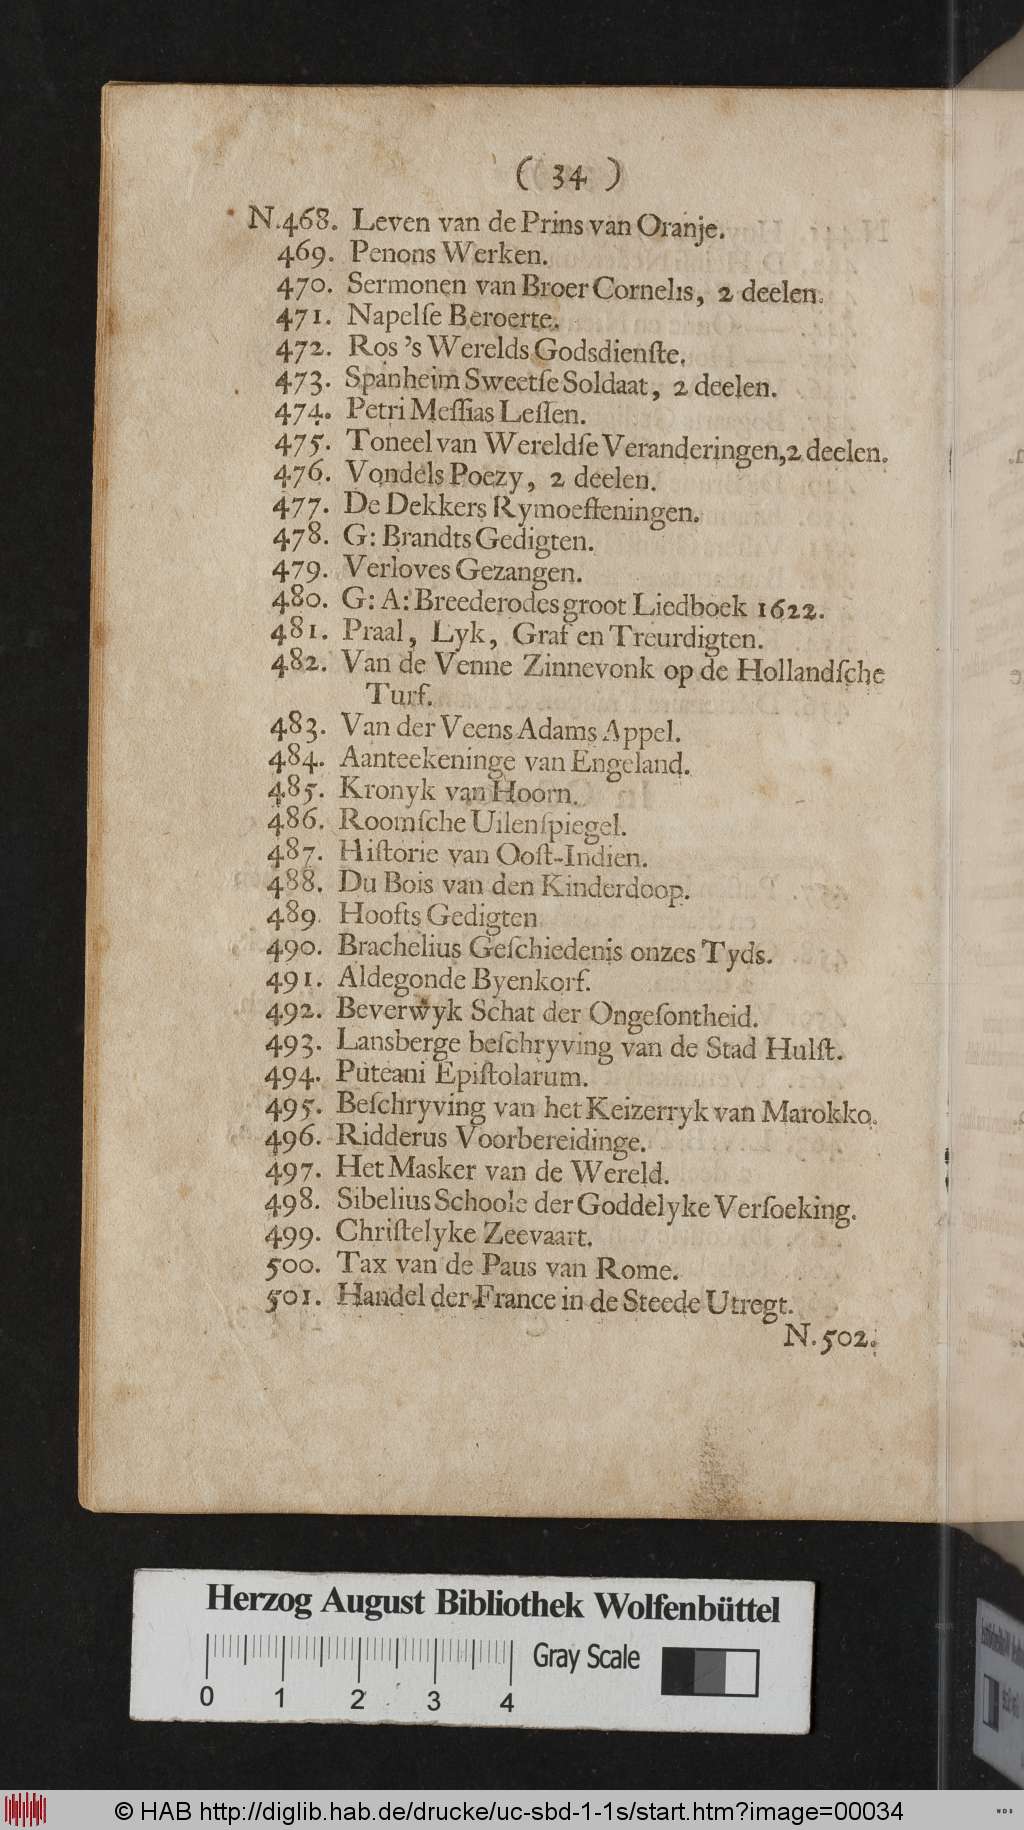 ( 34 )
N.468. Leven van de Prins van Oranje.
469. Penons Werken.
470. Sermonen van Broer Cornelis, 2 deelen.
471. Napelſe Beroerte.
472. Ros 's Werelds Godsdienſte.
473. Spanheim Sweetſe Soldaat, 2 deelen.
474. Petri Meſſias Leſſen.
475. Toneel van Wereldſe Veranderingen, 2 deelen.
476. Vondels Poezy, 2 deelen.
477. De Dekkers Rymoeffeningen.
478. G: Brandts Gedigten.
479. Verloves Gezangen.
480. G: A: Breederodes groot Liedboek 1622.
481. Praal, Lyk, Graf en Treurdigten.
482. Van de Venne Zinnevonk op de Hollandſche
Turf.
483. Van der Veens Adams Appel.
484. Aanteekeninge van Engeland.
485. Kronyk van Hoorn.
486. Roomſche Uilenſpiegel.
487. Hiſtorie van Ooſt-Indien.
488. Du Bois van den Kinderdoop.
489. Hoofts Gedigten
490. Brachelius Geſchiedenis onzes Tyds.
491. Aldegonde Byenkorf.
492. Beverwyk Schat der Ongeſontheid.
493. Lansberge beſchryving van de Stad Hulſt.
494. Puteani Epiſtolarum.
495. Beſchryving van het Keizerryk van Marokko.
496. Ridderus Voorbereidinge.
497. Het Masker van de Wereld.
498. Sibelius Schoole der Goddelyke Verſoeking.
499. Chriſtelyke Zeevaart.
500. Tax van de Paus van Rome.
501. Handel der France in de Steede Utregt.
N. 502.
Herzog August Bibliothek Wolfenbüttel
Gray Scale
0 1 2 3 4
© HAB http://diglib.hab.de/drucke/uc-sbd-1-1s/start.htm?image=00034